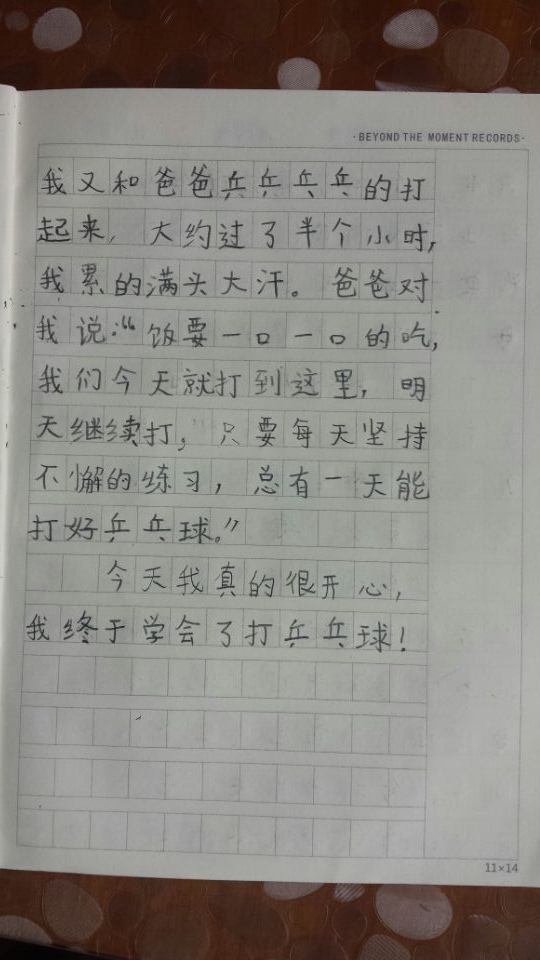 ·BEYOND THE MOMENT RECORDS·
我又和爸爸乒乒乓乓的打
起来，大约过了半个小时，
我累的满头大汗。爸爸对
我说：“饭要一口一口的吃，
我们今天就打到这里，明
天继续打，只要每天坚持
不懈的练习，总有一天能
打好乒乓球。”
今天我真的很开心，
我终于学会了打乒乓球！
11×14